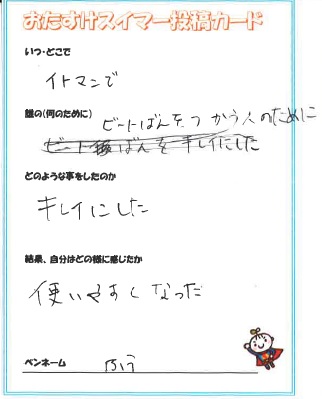 おたすけスイマー投稿カード
いつ・どこで
イトマンで
誰の(何のために)
ビートばんをつかう人のために
ビート板ばんをキレイにした
どのような事をしたのか
キレイにした
結果、自分はどの様に感じたか
使いやすくなった
ペンネーム